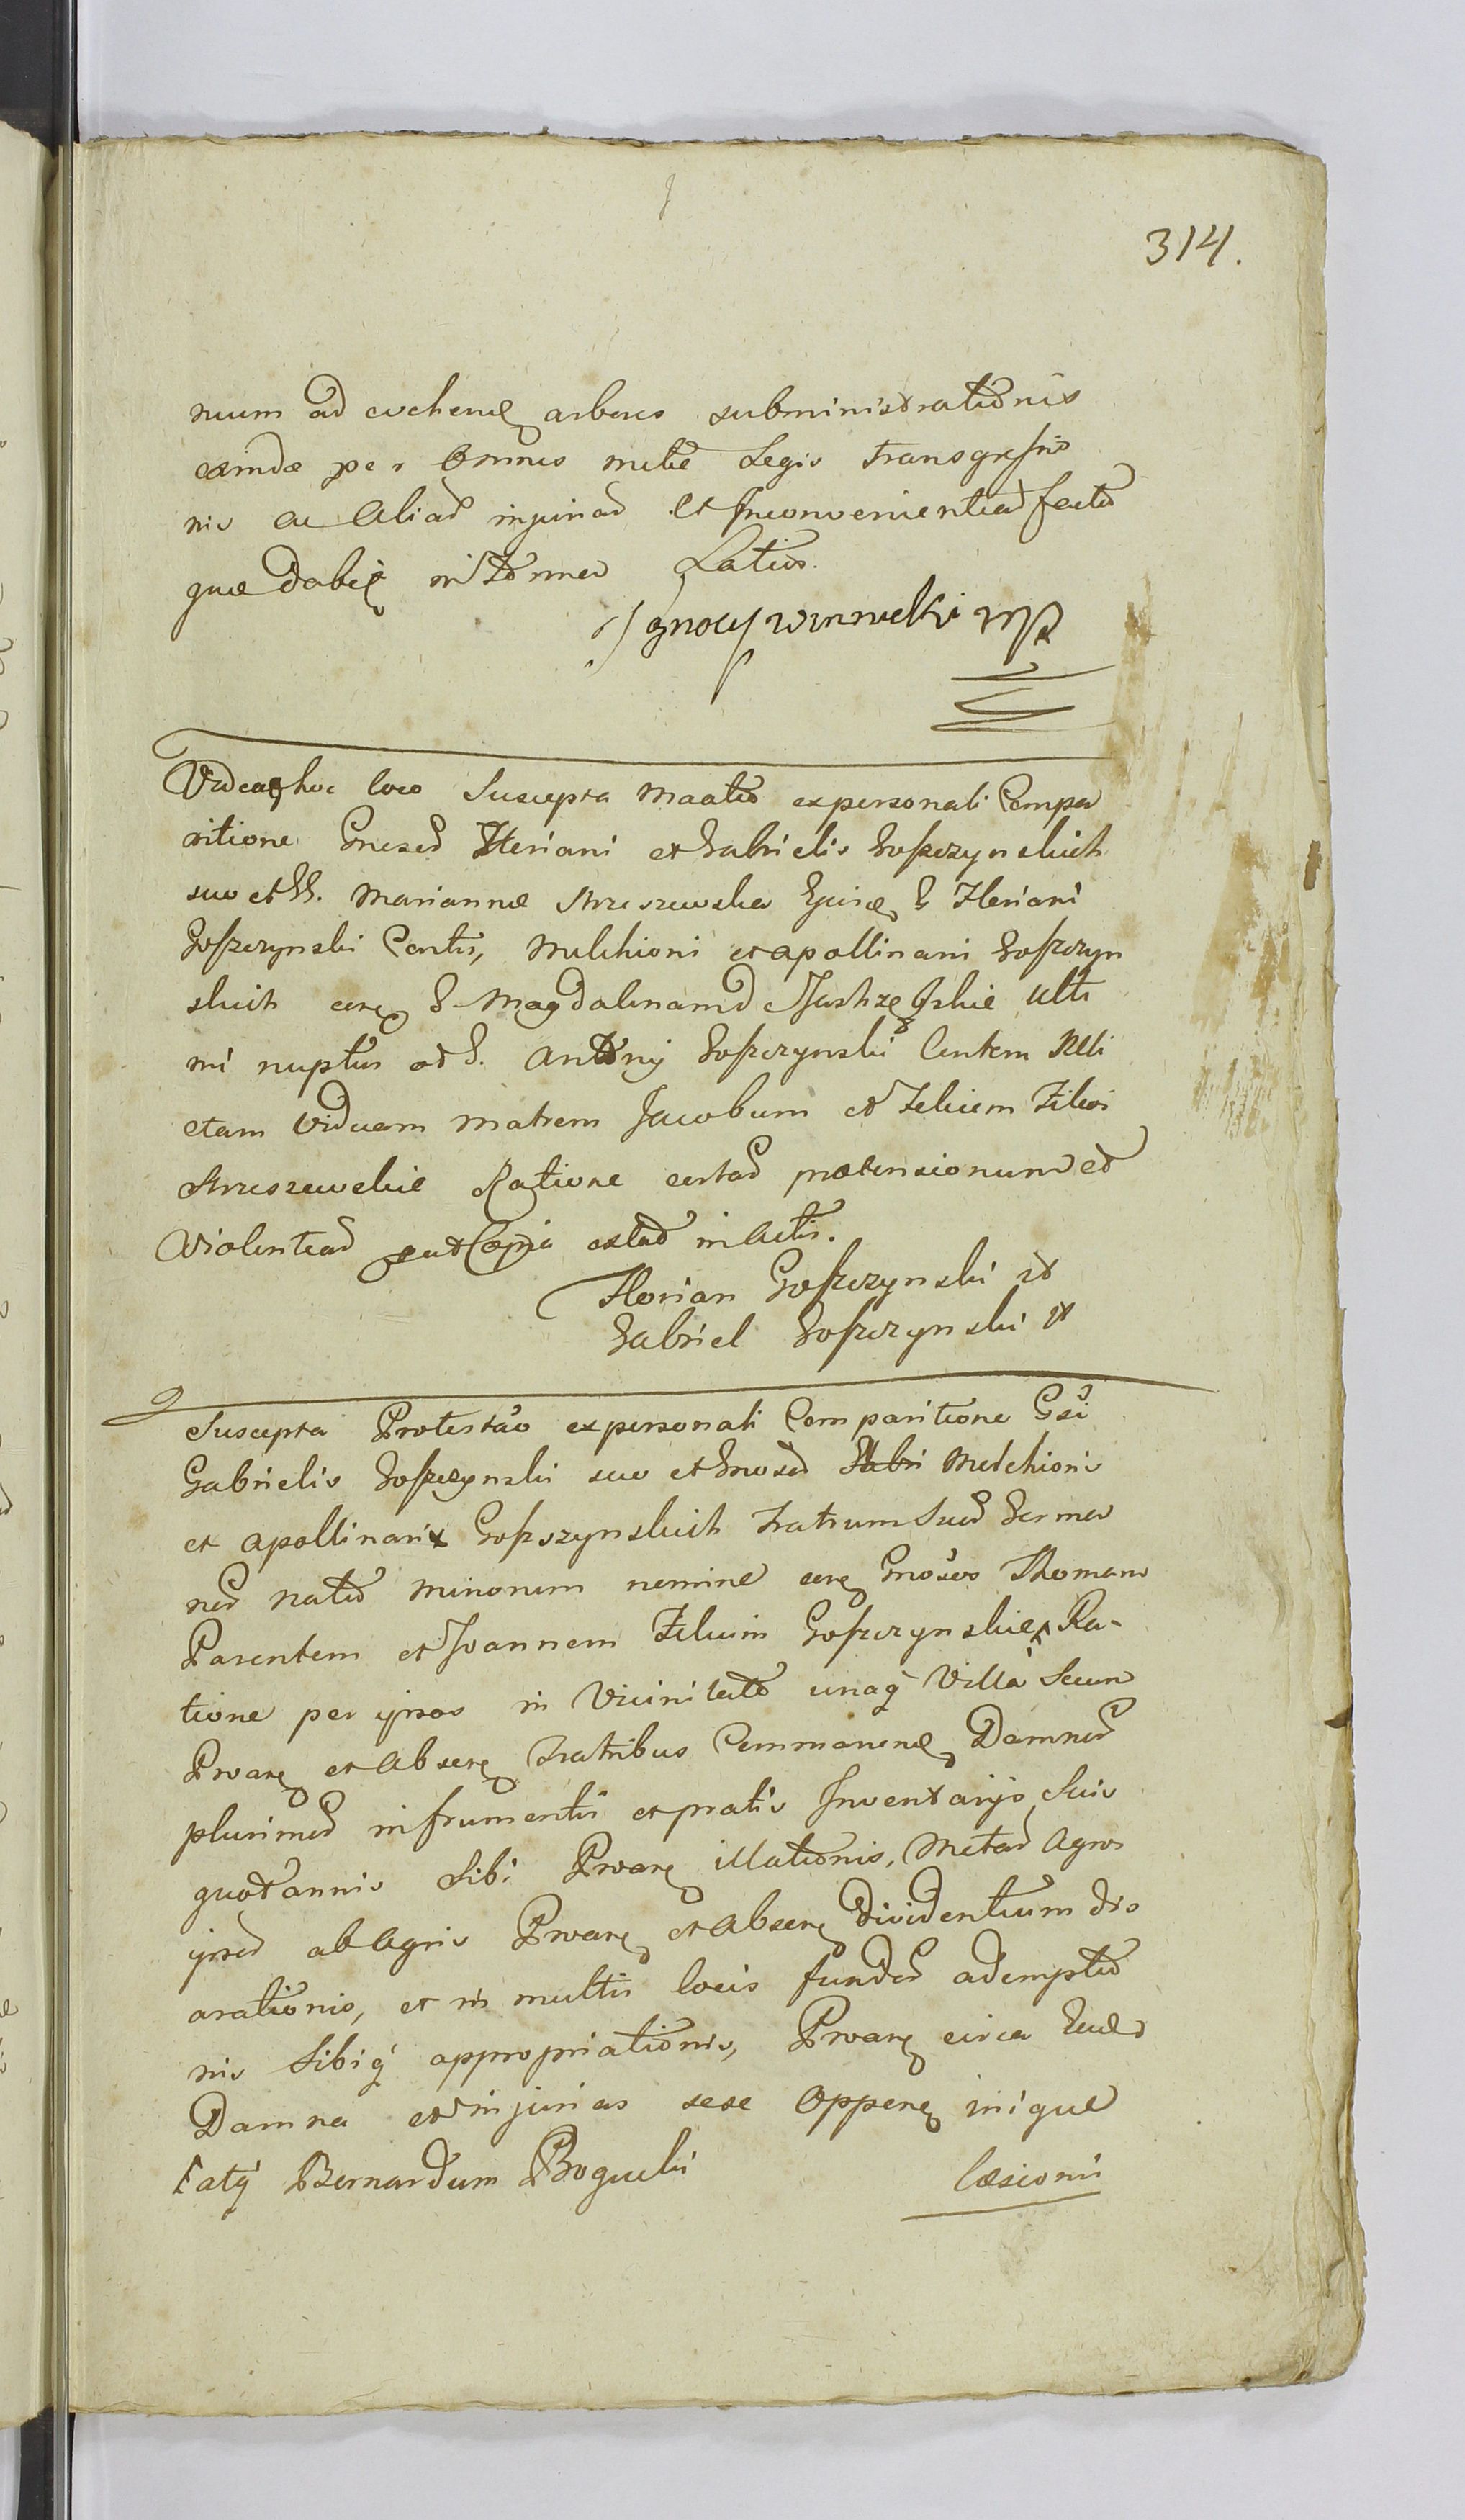 314.
num ad evehend arbores subministrationis
eximde per omnes metae Legis transgressio
nis ac aliar injuriar et Inconvenientiar factar
quae dabit in Termino Latius.
Ignacy winnicki mp
Videat hoc loco Suscepta Maatio ex personali Compa
ritione Gnosor Floriani et Gabrielis Goszczynskich
suo et GG. Mariannae Strzeszewska G Floriani
Goszczynski Contis, Melchioris et apollinaris Goszczyn
skich cora G Magdalenam Jastrzębskie Ulti
mi nuptus ad G. Antonij Goszczynski Contem Reli
ctam Viduam matrem Jacobum et Felicem Filios
Strzeszewskie Ratione certar praetensionum et
Violentiar put Copia extat in actis.
Florian Goszczynski
Gabriel Goszczynski
Suscepta Protestao ex personali Comparitione Gsi
Gabrielis Goszczynski suo et Gnosor Melchioris
et apollinaris Goszczynskich Fratrum Suor Germa
nor nator minorum nomine cora Gnosos Thomam
Parentem et Joannem Filium Goszczynskie Ra-
tione per ipsos in Vicinitate unaq Villa Secum
Proare et absere Fratribus Commanend Damnor
plurimor in frumentis et pratis Inventarijs Suis
quotannis Sibi Proare illationis, Metar Agros
ipsor ab agris Proare et absere dividentium dis
arationis, et in multis locis fundor ademptio
nis Sibiq appropriationis, Proare circa
Damna et injurias sese Oppone inique
laesionis
atq Bernardum Bogucki